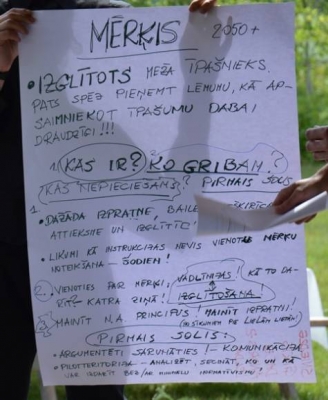 MĒRĶIS 2050+
• IZGLĪTOTS MEŽA ĪPAŠNIEKS
PATS SPĒJ PIEŅEMT LĒMUMU, KĀ AP-
SAIMNIEKOT ĪPAŠUMU DABAI
DRAUDZĪGI!!!
1) KAS IR? KO GRIBAM?
KAS NEPIECIEŠAMS? PIRMAIS SOLIS
1. • DAŽĀDA IZPRATNE, BAILES
ATTIEKSME UN
• LIKUMI KĀ INSTRUKCIJAS NEVIS VIENOTAIS MĒRĶU
INTEIKŠANA - ŠODIEN!
2. VIENOTIES PAR MĒRĶI, VADLĪNIJAS! KĀ TO DA-
KATRA ZIŅĀ! IZGLĪTOŠANA!
3. MAINĪT N.A. PRINCIPUS! MAINĪT IZPRATNI!
PIRMAIS SOLIS:
• ARGUMENTĒTI SARUNĀTIES! - KOMUNIKĀCIJA
• PILOTTERITORIJA - ANALIZĒT, SECINĀT, KO UN KĀ
VAR IZDARĪT BEZ/AR